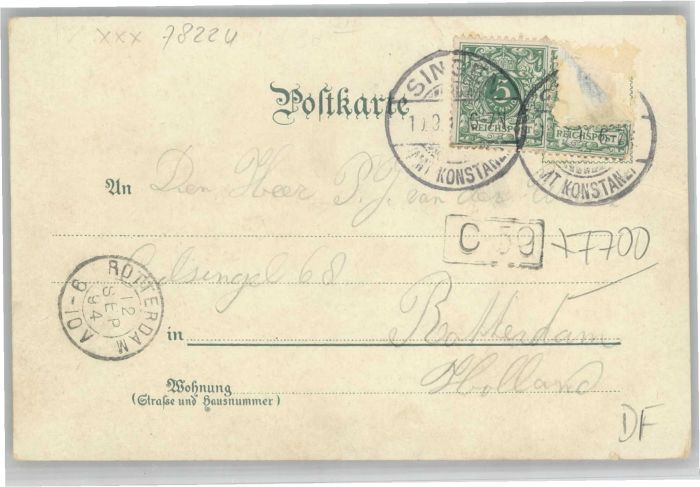 xxx 78224
SINGEN
10.9. 6-7N
AMT KONSTANZ
5
REICHSPOST
REICHSPOST
6-7
AMT KONSTANZ
Postkarte
An Den Heer P.J. van der
C 59
x7700
68
ROTTERDAM
12
SEP
94
8-10V
in Rotterdam
Holland
Wohnung
(Straße und Hausnummer)
DF